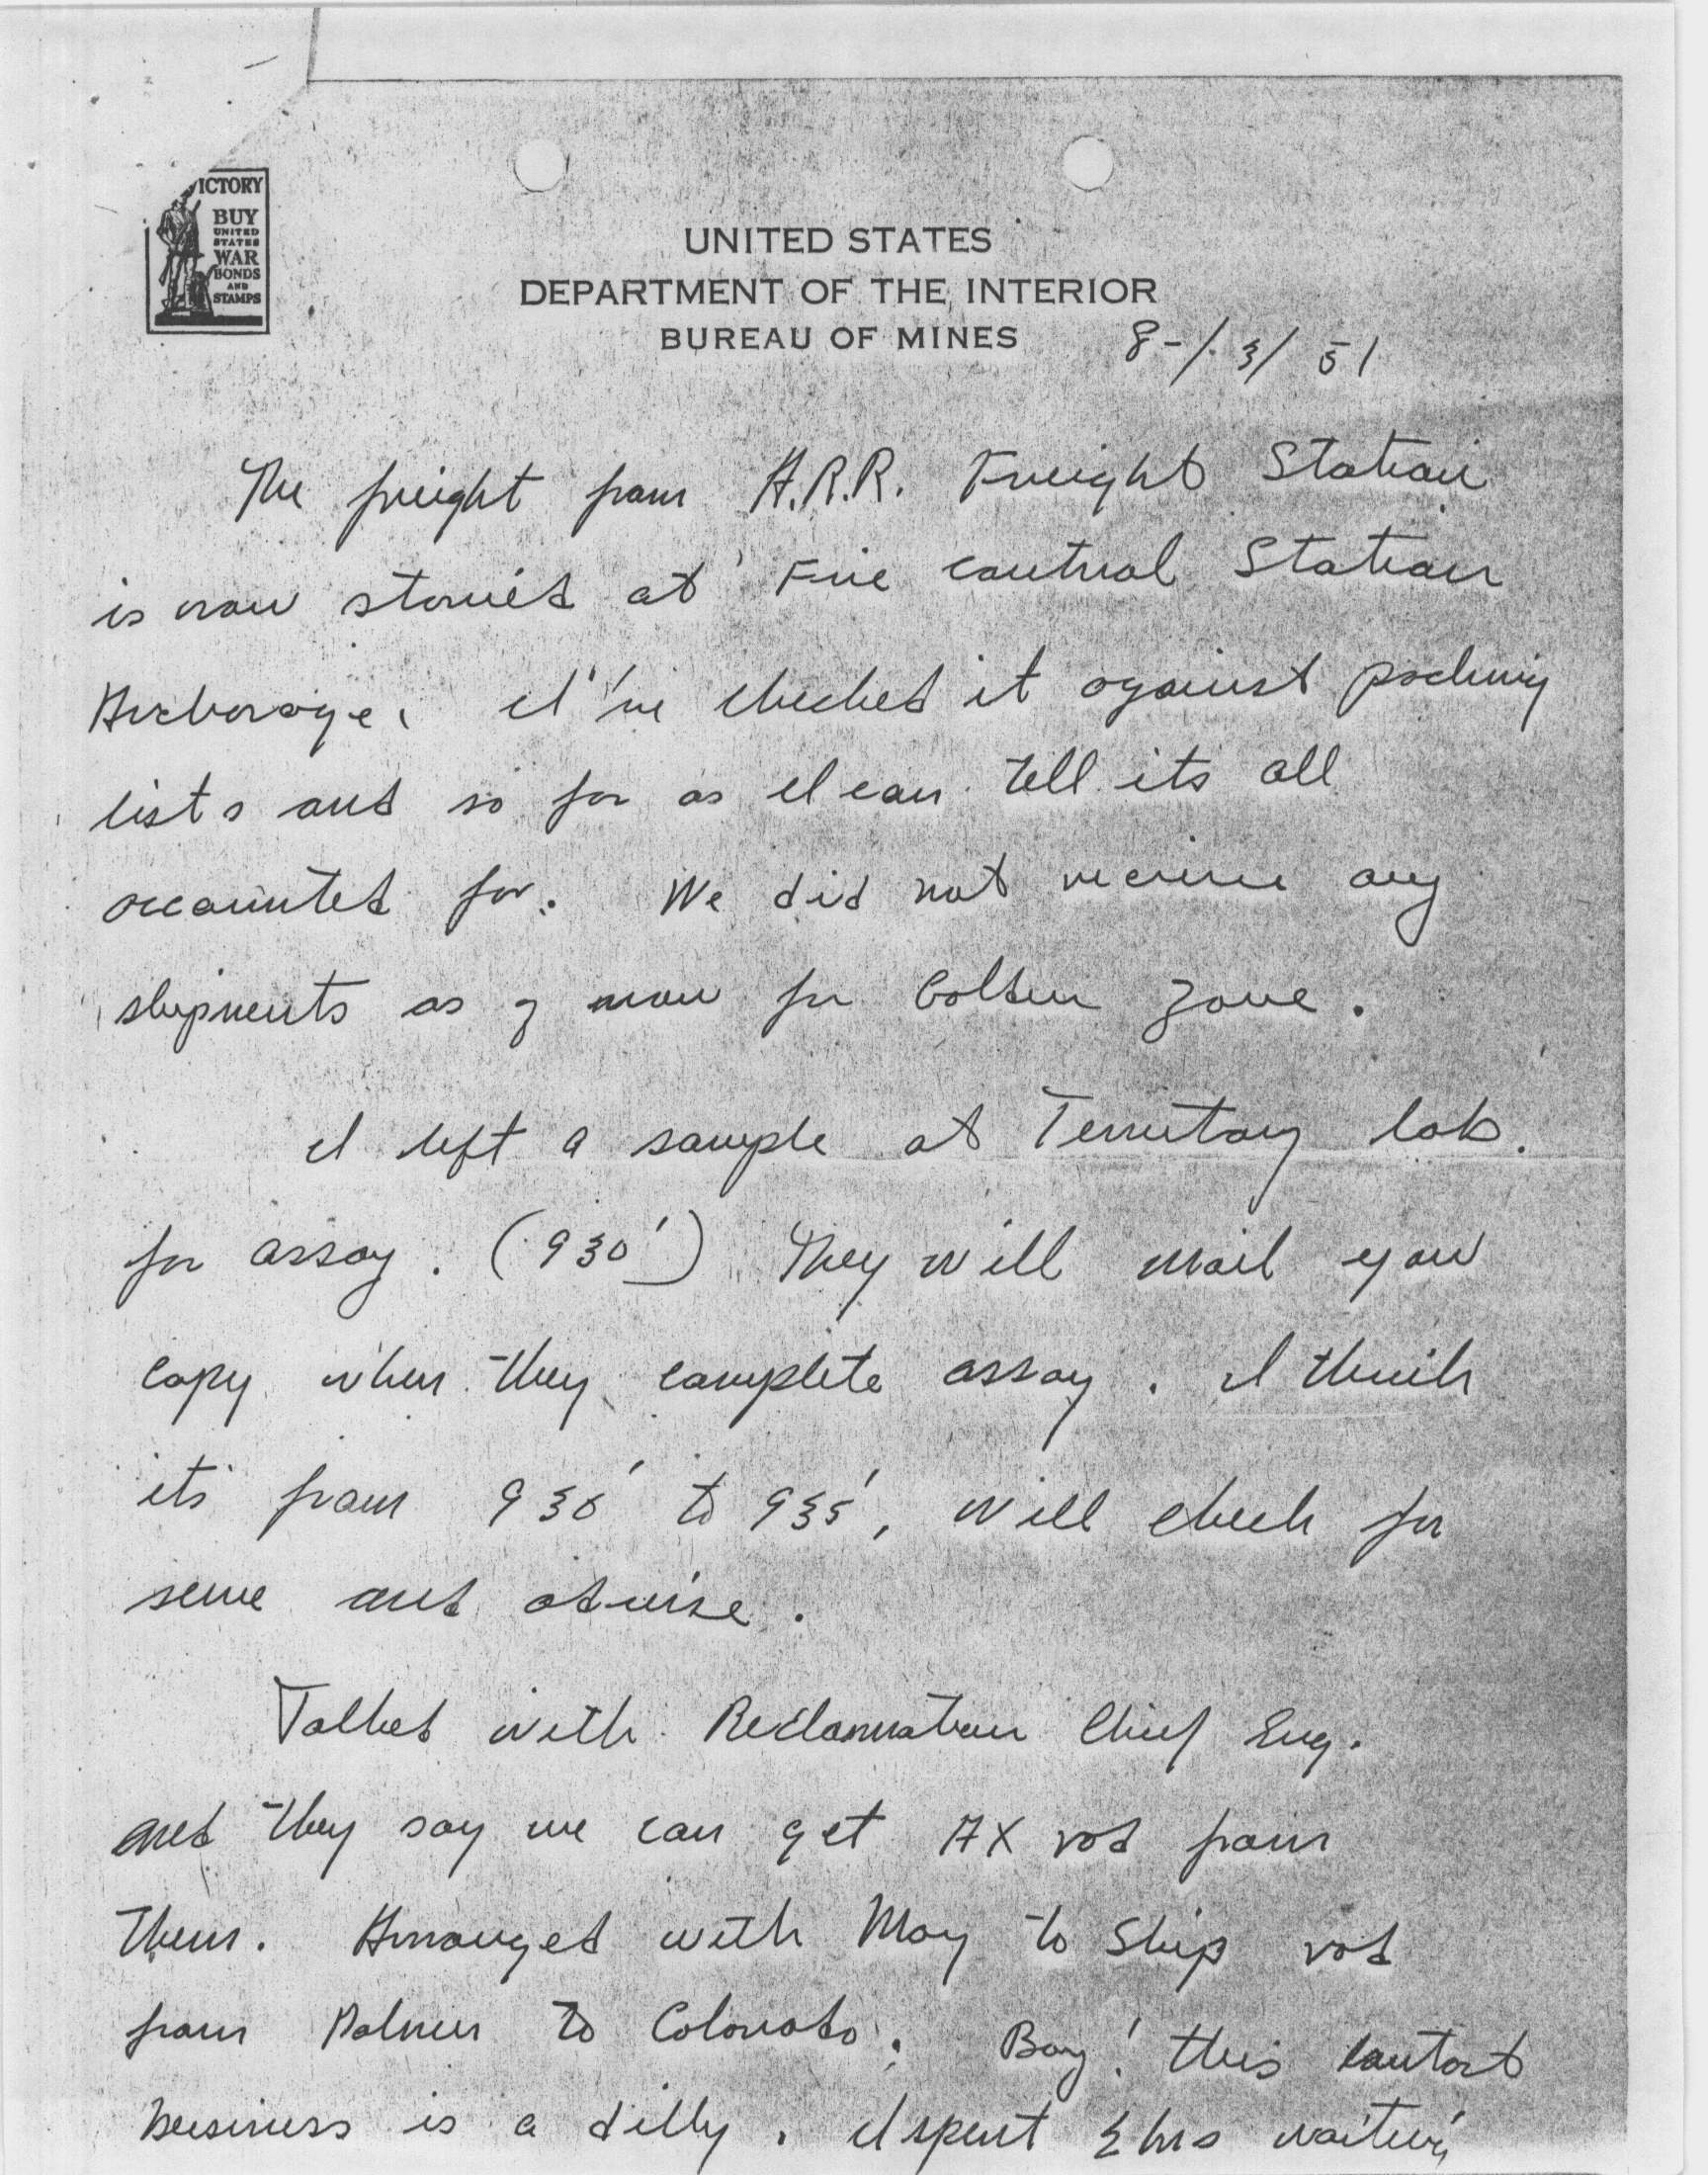 VICTORY
BUY
UNITED
STATES
WAR
BONDS
AND
STAMPS
UNITED STATES
DEPARTMENT OF THE INTERIOR
BUREAU OF MINES
8-13/51
The freight from A.R.R. Freight Station
is now stored at Fire control Station
Anchorage. I've checked it against packing
lists and so far as I can tell its all
accounted for. We did not receive any
shipments as of now for Golden Zone.
I left a sample at Territory lab.
for assay. (930') They will mail you
copy when they complete assay. I think
its from 930' to 935', will check for
sure and advise.
Talked with Reclamation Chief Eng.
and they say we can get AX rod from
them. Arranged with May to Ship rod
from Palmer to Colorado. Boy! this contact
business is a dilly. I spent 2 hrs waiting